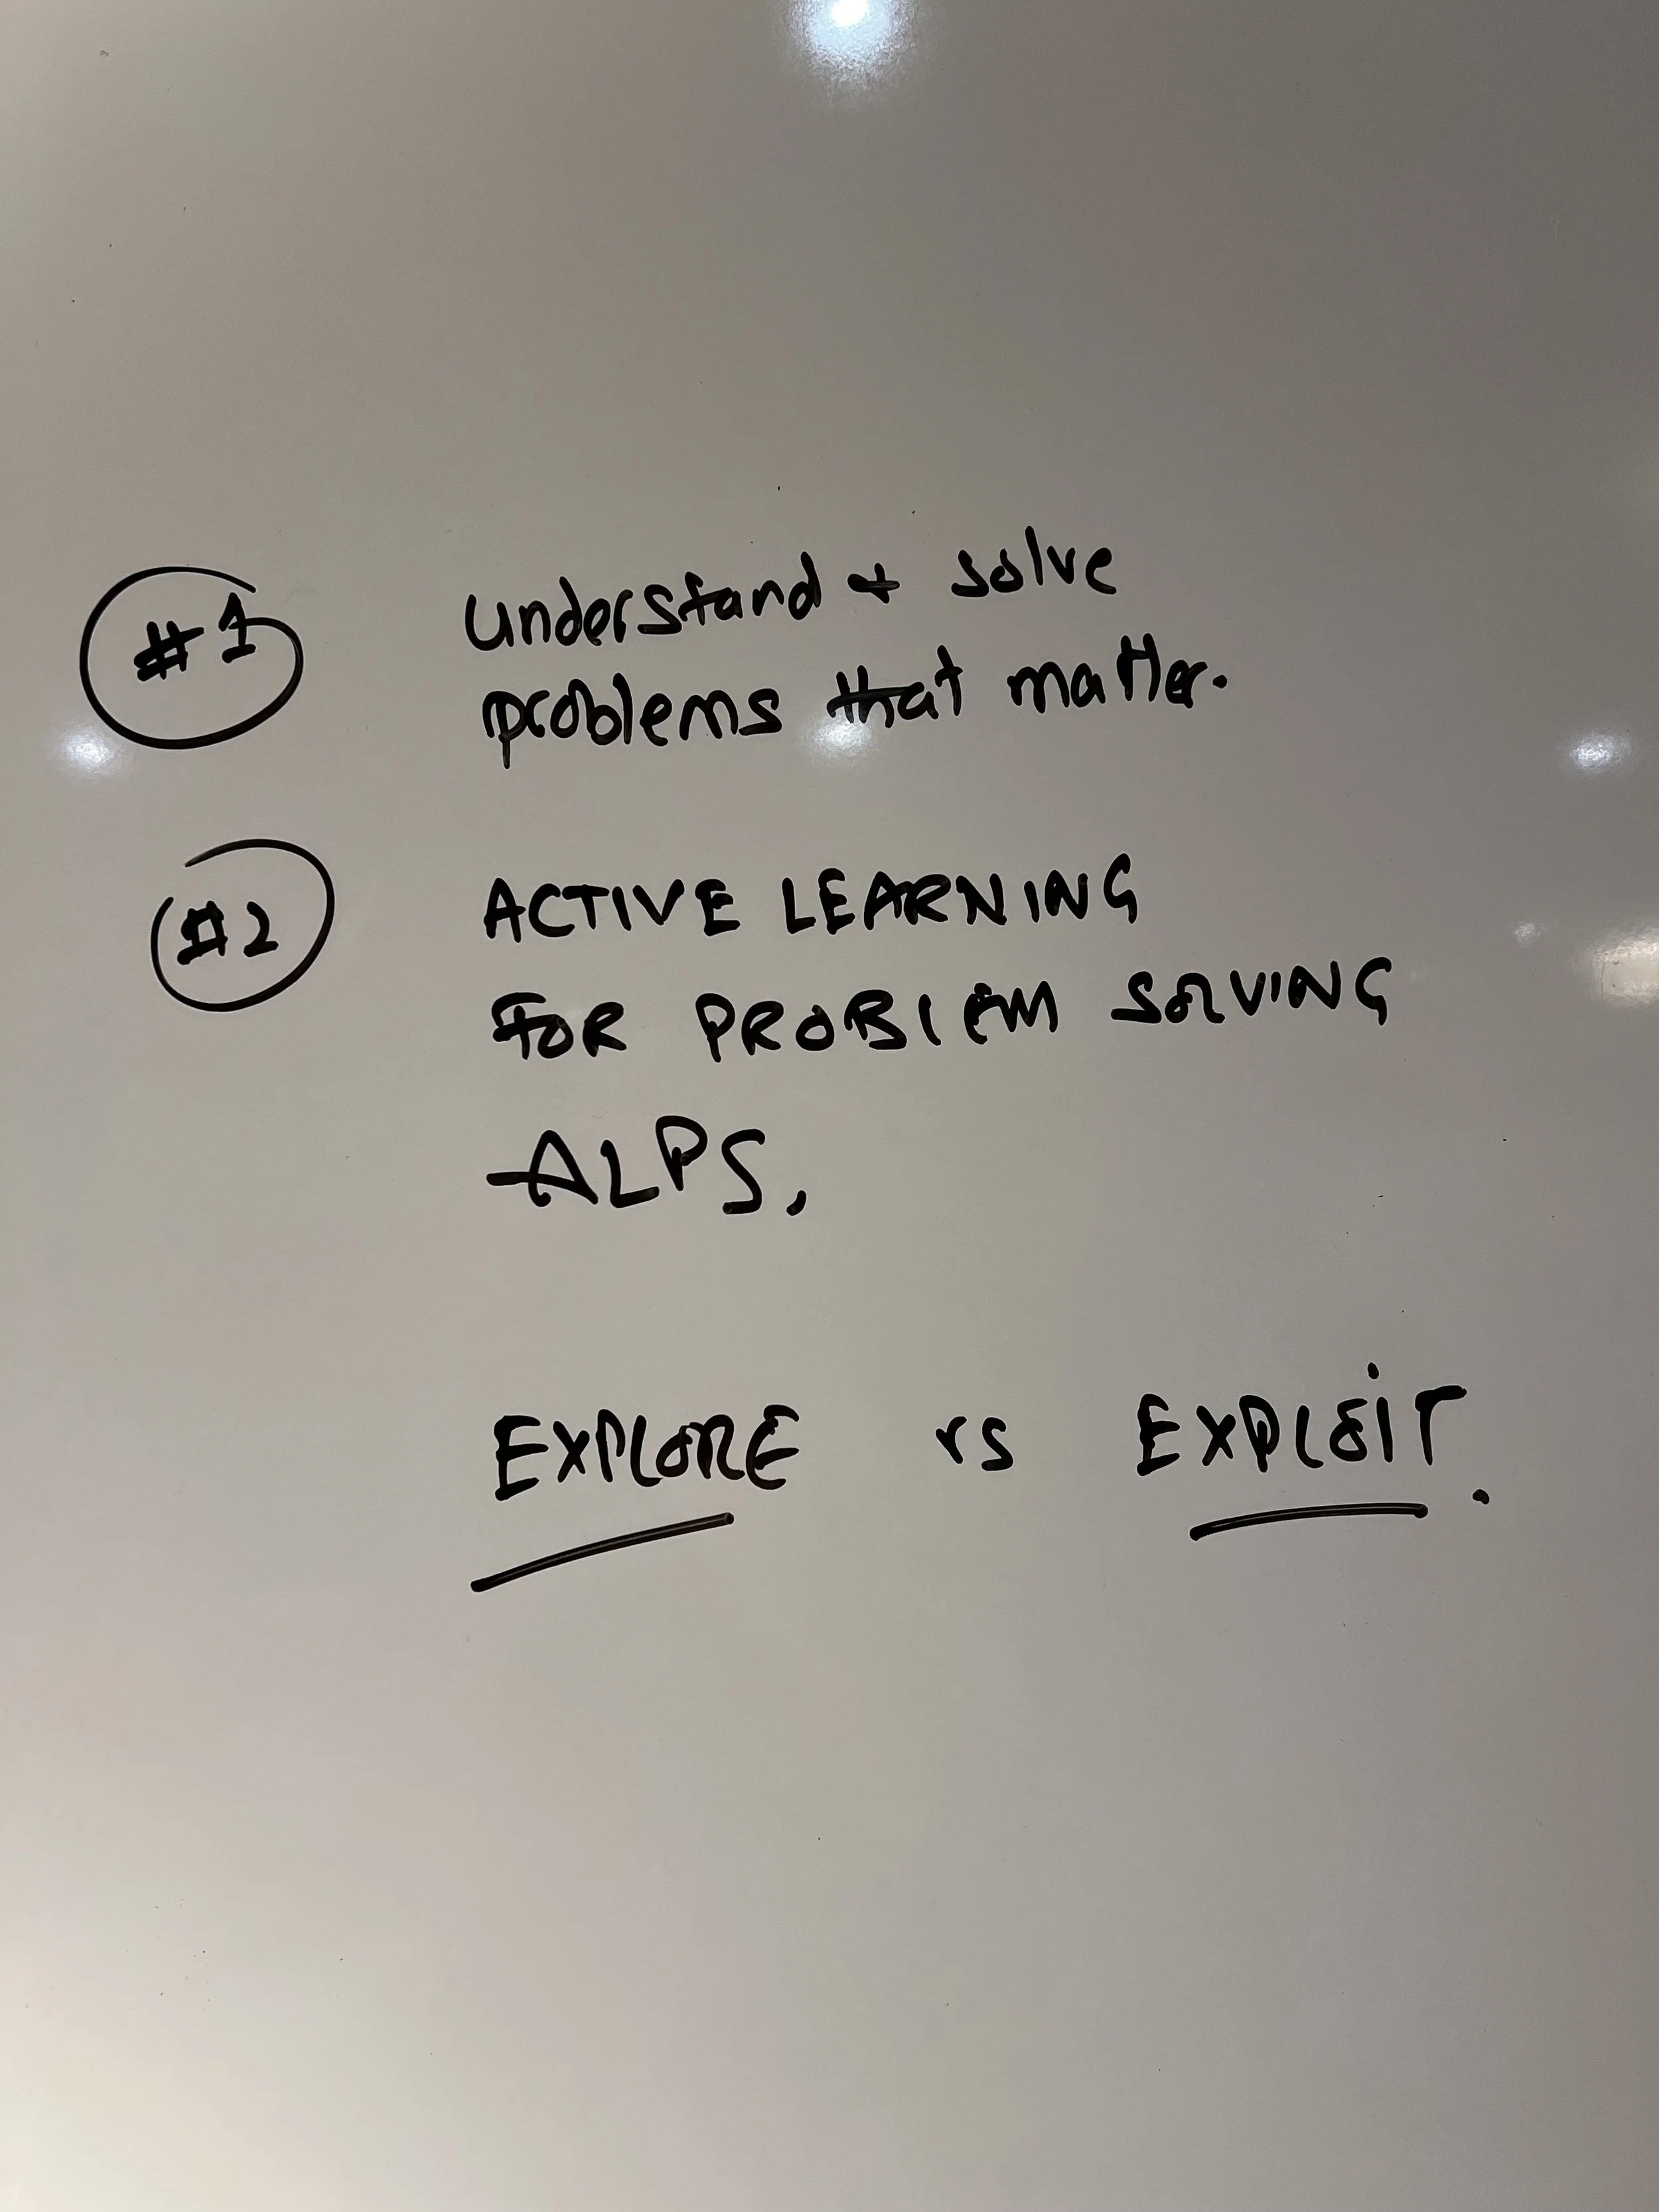 #1 understand + solve
problems that matter.
#2 ACTIVE LEARNING
FOR PROBLEM SOLVING
ALPS.
EXPLORE vs EXPLOIT.